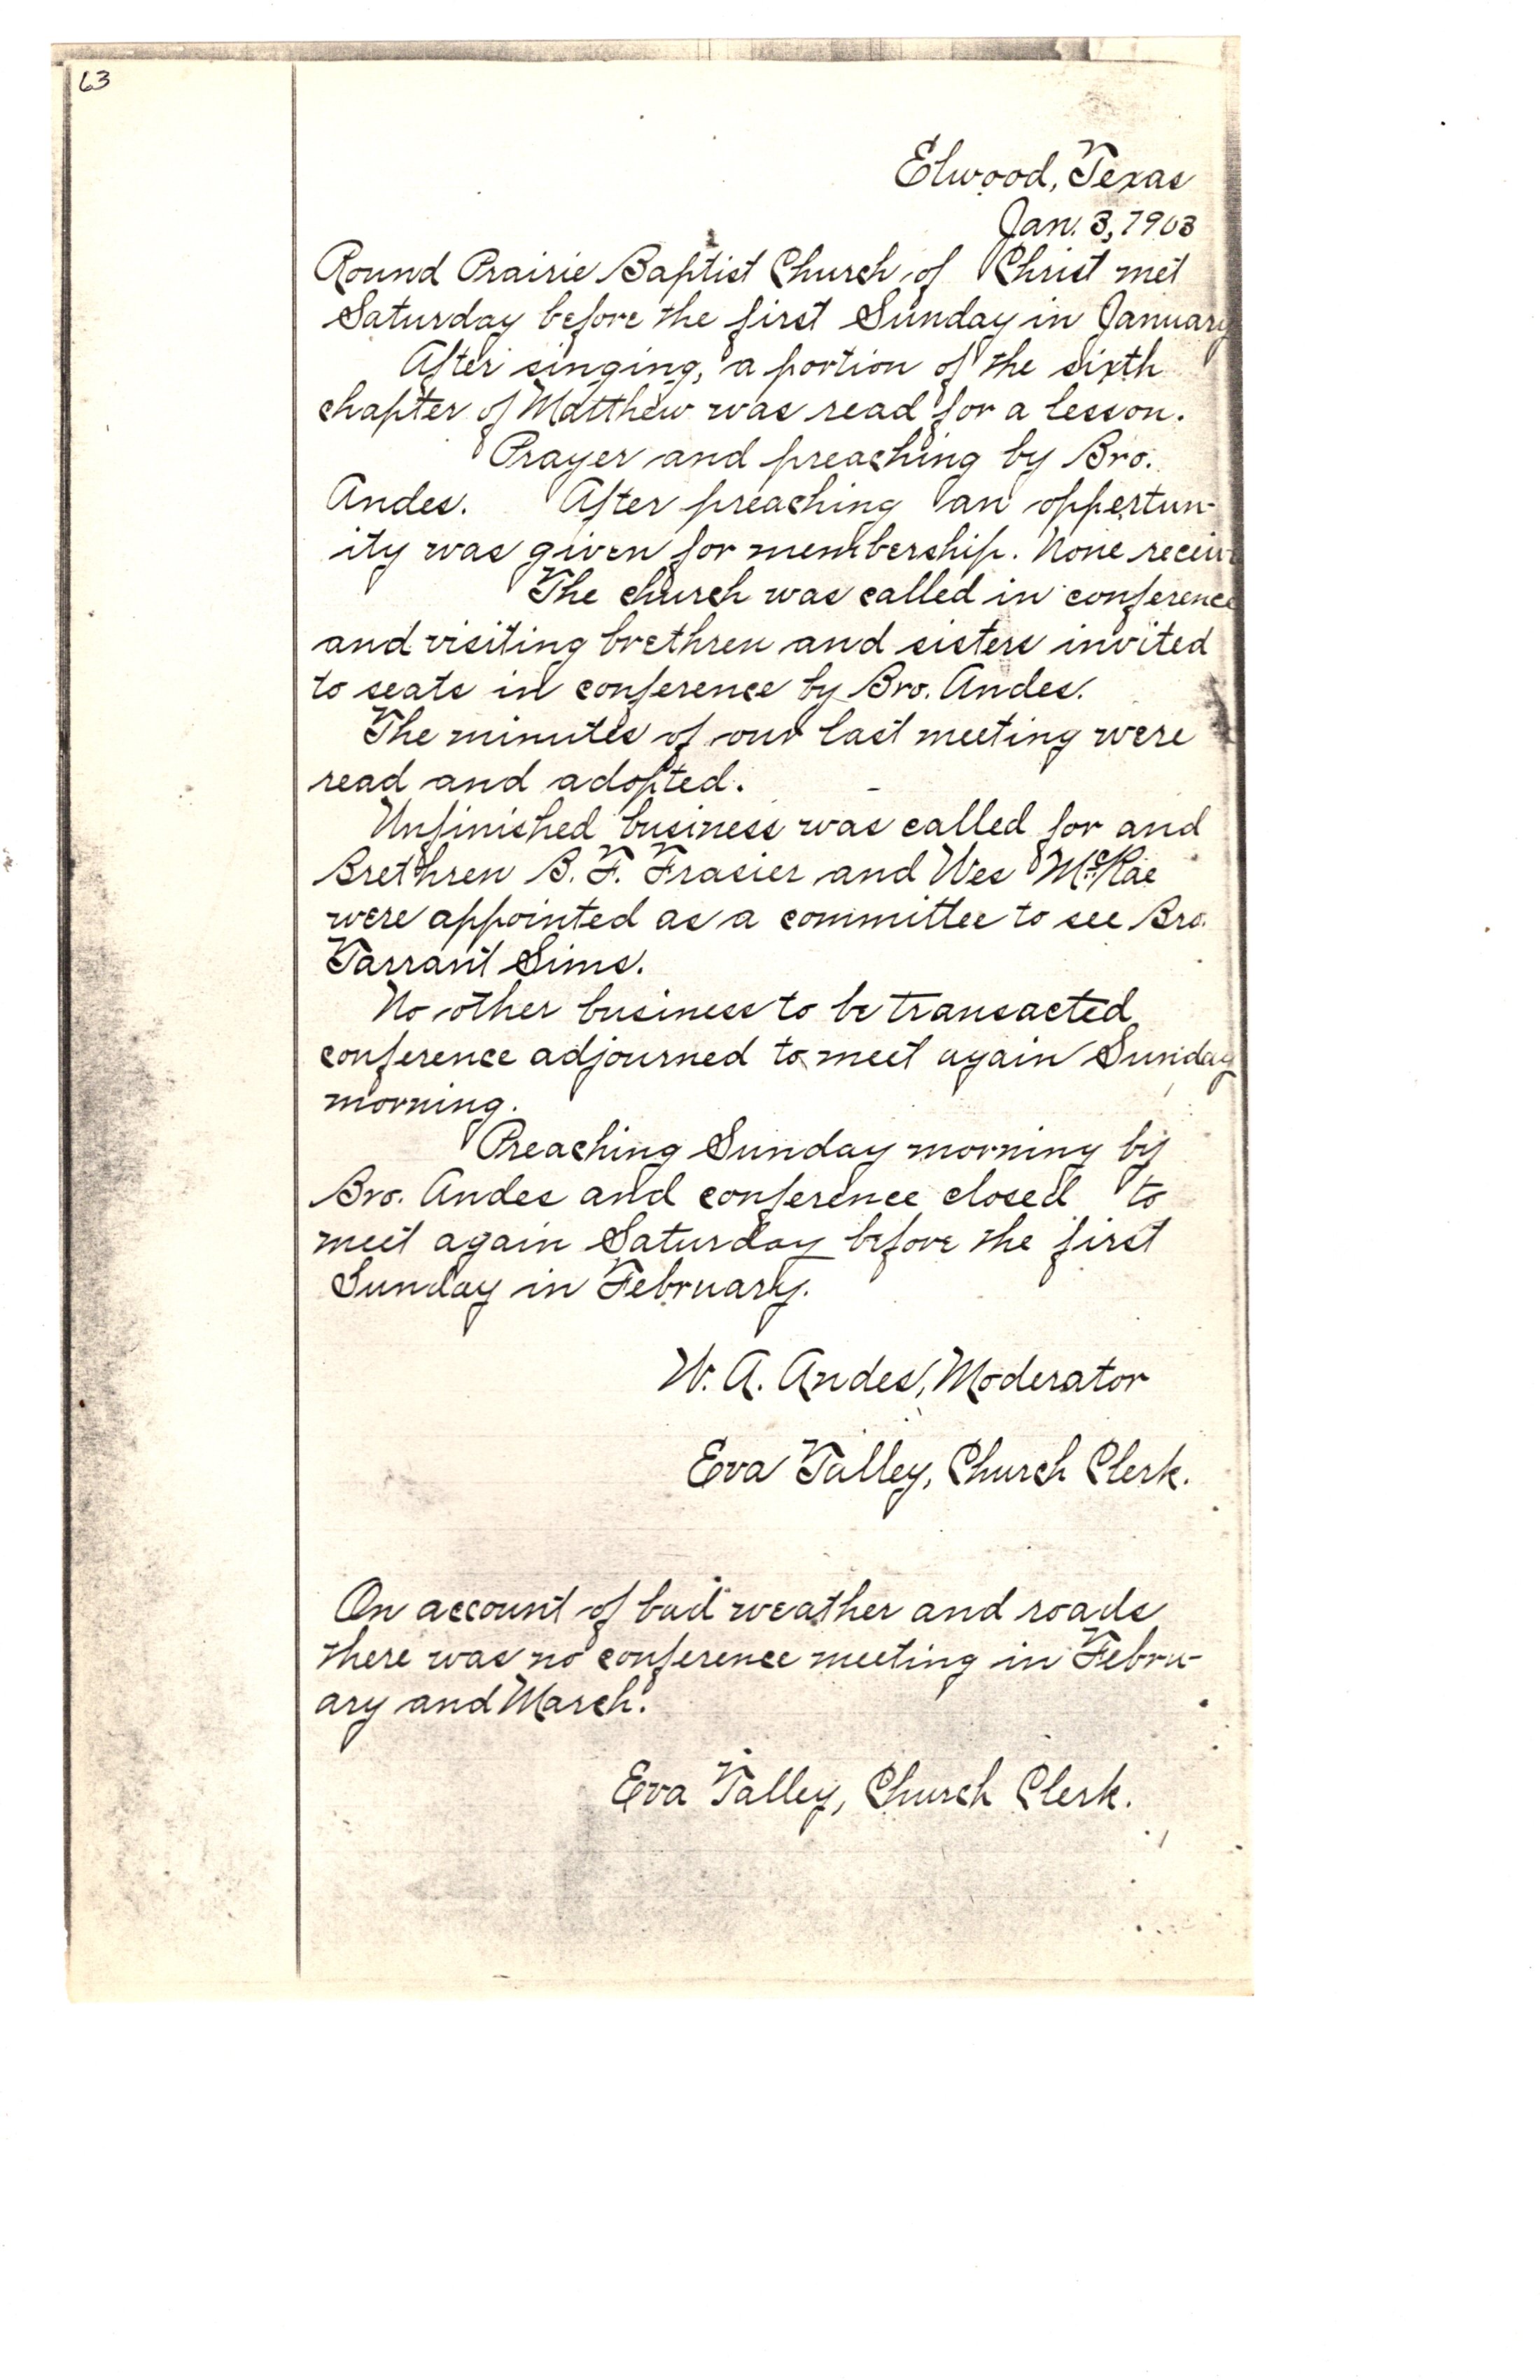 63
Elwood, Texas
Jan. 3, 1903
Round Prairie Baptist Church of Christ met
Saturday before the first Sunday in January
After singing, a portion of the sixth
chapter of Matthew was read for a lesson.
Prayer and preaching by Bro.
Andes. After preaching an oppertun-
ity was given for membership. None receiv
The church was called in conference
and visiting brethren and sisters invited
to seats in conference by Bro. Andes.
The minutes of our last meeting were
read and adopted.
Unfinished business was called for and
Brethren B. F. Frasier and Wes McRae
were appointed as a committee to see Bro.
Tarrant Sims.
No other business to be transacted
conference adjourned to meet again Sunday
morning.
Preaching Sunday morning by
Bro. Andes and conference closed to
meet again Saturday before the first
Sunday in February.
W. A. Andes, Moderator
Eva Talley, Church Clerk.
On account of bad weather and roads
there was no conference meeting in Febru-
ary and March.
Eva Talley, Church Clerk.